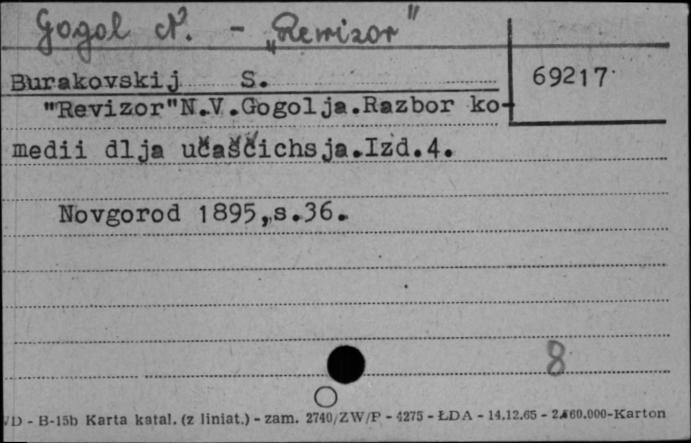 Gogol N. - „Rewizor"
Burakovskij S.
69217
"Revizor"N.V.Gogolja.Razbor ko-
medii dlja učaščichsja.Izd.4.
Novgorod 1895,s.36.
8
D - B-15b Karta katal. (z liniat.) - zam. 2740/ZW/P - 4275 - ŁDA - 14.12.65 - 2.460.000-Karton